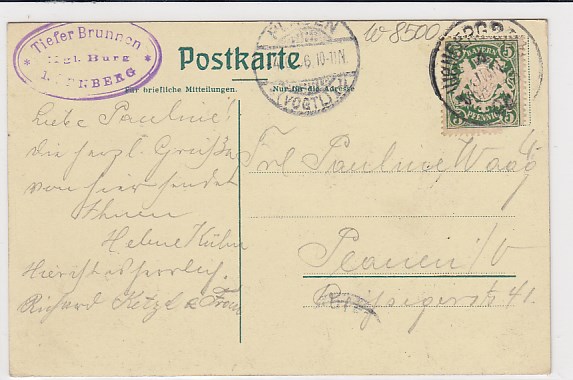 Tiefer Brunnen
Kgl. Burg
NÜRNBERG
Postkarte
PLAUEN
6. 10-11N.
(VOGTL)
w 8500
BAYERN
5
5
PFENNIG
Für briefliche Mitteilungen.
Nur für die Adresse
Liebe Pauline!
die herzl. Grüße
von hier sendet
Ihnen
Helene Kühn
Hier ist es herrlich.
Richard Ketzel & Frau
Frl. Pauline Waag
Plauen i/V
41.